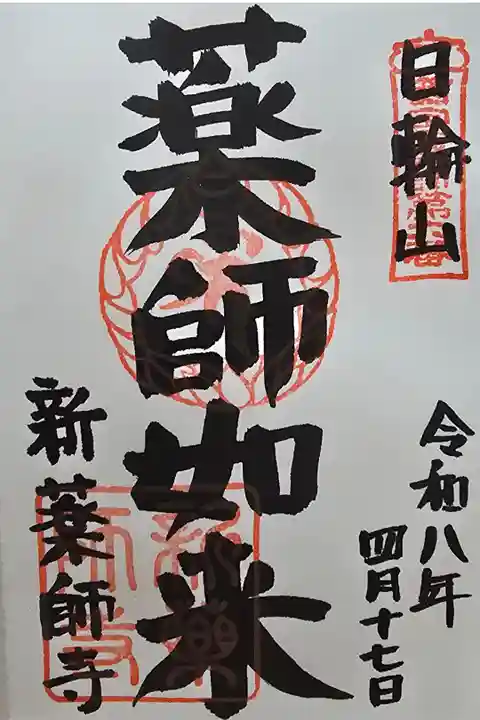 日輪山
令和八年
四月十七日
薬師如来
新薬師寺